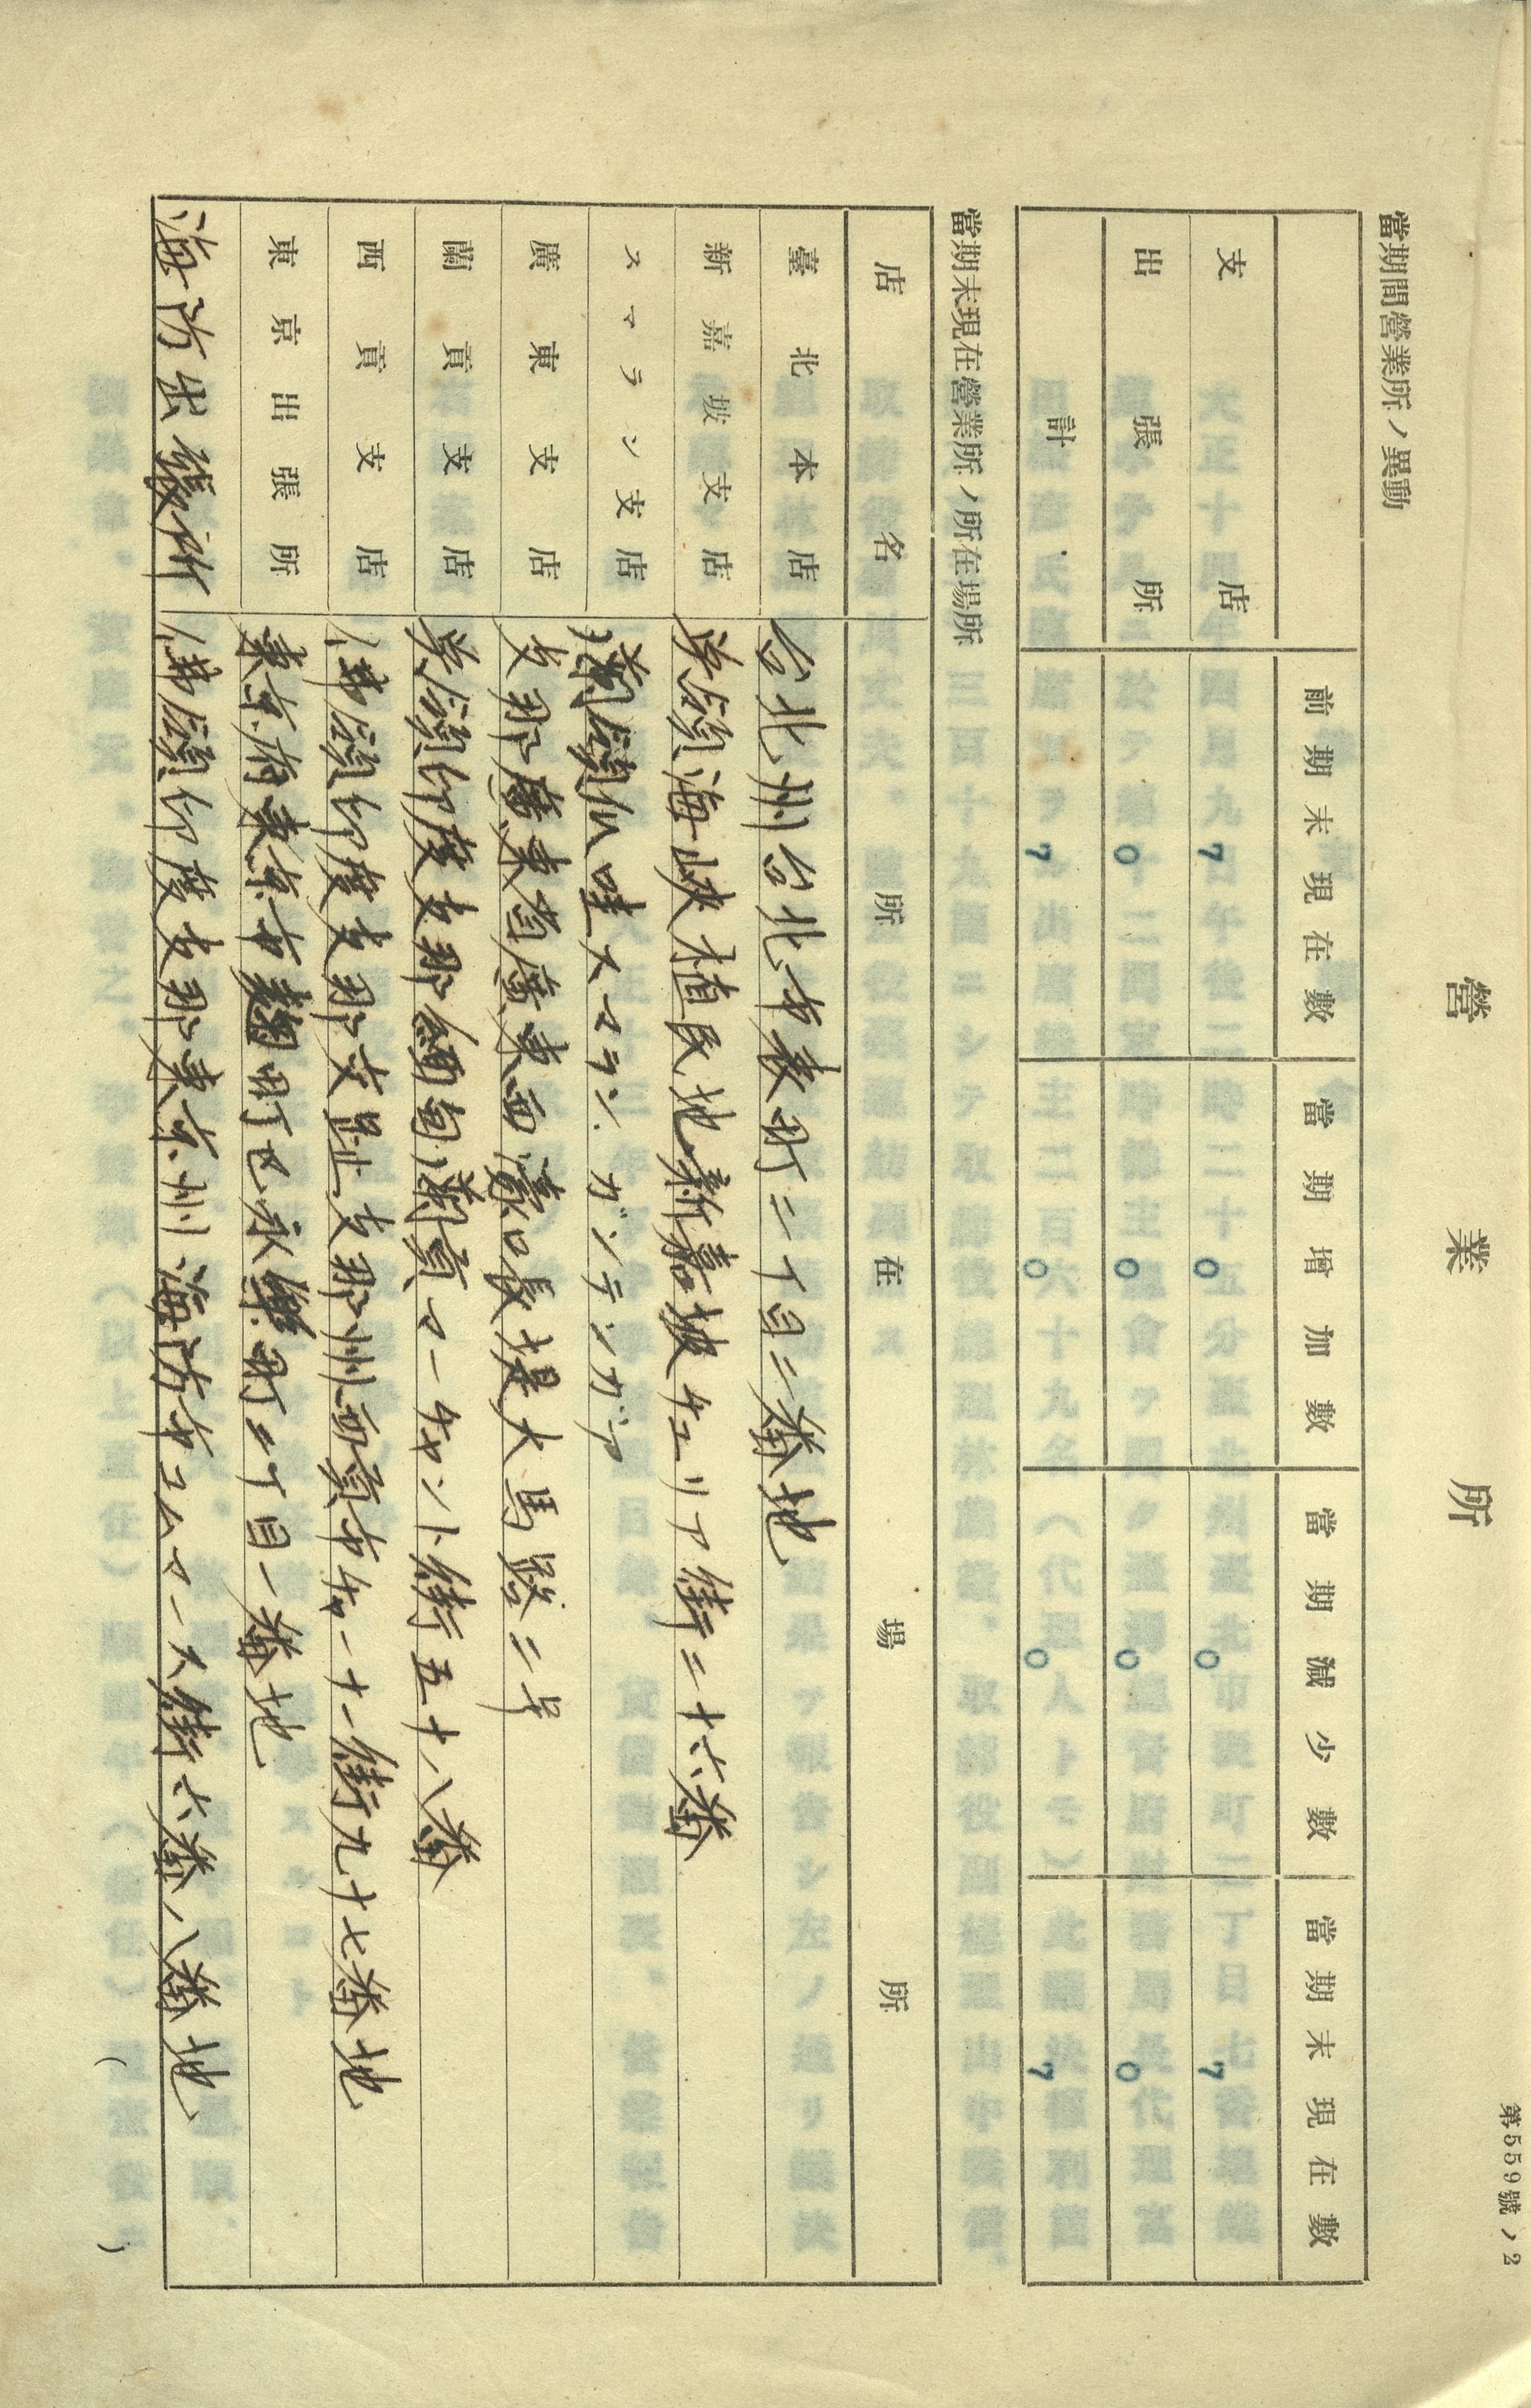 第559號ノ2
營業所
當期間營業所ノ異動
前期末現在數 當期增加數 當期減少數 當期末現在數
支店 7 0 0 7
出張所 0 0 0 0
計 7 0 0 7
當期末現在營業所ノ所在場所
店名 所在場所
臺北本店 台北州台北市表町二丁目二番地
新嘉坡支店 英領海峽植民地新嘉坡セシリア街二十六番
スマラン支店 蘭領爪哇スマラン、ガンテンガア
廣東支店 支那廣東省廣東西濠口長堤大馬路二号
蘭貢支店 英領印度支那緬甸蘭貢マーチャント街五十八番
西貢支店 佛領印度支那交趾支那州西貢市第一十一街九十七番地
東京出張所 東京府東京市麹町区永樂町二丁目一番地
海防出張所 佛領印度支那東京州海防市コムマース街六番八番地
( )